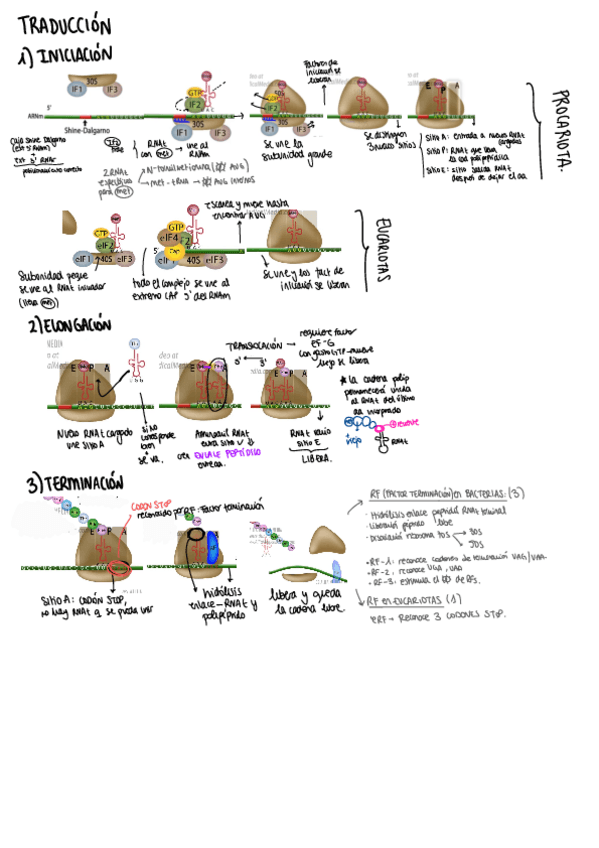 TRADUCCIÓN
1) INICIACIÓN
30S
IF1
IF3
ARNm
Shine-Dalgarno
Caja Shine Dalgarno
(ext 5' RNAm)
ext 3' RNAr
GTP
IF2
30S
IF1
IF3
RNAt
con met → une al
RNAm
2 RNAt
específicos
para met
GTP
IF2
IF1
IF3
Se une la
subunidad grande
Factores de
iniciación se
liberan
Se distinguen
3 nuevos sitios
E P A
Sitio A: entrada a nuevos RNAt
cargados
Sitio P: RNAt que lleva
la cad polipeptídica
Sitio E: sitio salida RNAt
después de dejar el aa
PROCARIOTA.
GTP
eIF2
eIF1
40S
eIF3
Subunidad peque
se une al RNAt iniciador
(lleva met)
5'
GTP
eIF4
40S
eIF3
todo el complejo se une al
extremo CAP 5' del RNAm
escanea y mueve hasta
encontrar AUG
Se une y los fact de
iniciación se liberan
EUCARIOTAS
2) ELONGACIÓN
E P A
Nuevo RNAt cargado
une sitio A
si no
corresponde
bien
se va.
E P A
Aminoacil RNAt
entra sitio
ENLACE PEPTÍDICO
TRANSLOCACIÓN → requiere factor
EF-G
5' 3'
luego se libera
E A
RNAt vacío
sitio E
LIBERA.
★ la cadena polip
permanecerá unida
al RNAt del último
aa incorporado
viejo
RNAt
3) TERMINACIÓN
CODÓN STOP
reconocido por RF: Factor terminación
E P A
Sitio A: codón STOP,
no hay RNAt q se pueda unir
hidrólisis
enlace-RNAt y
polipéptido
libera y queda
la cadena libre.
RF (FACTOR TERMINACIÓN) en BACTERIAS: (3)
· Hidrólisis enlace peptidil RNAt terminal
· Liberación péptido libre
· Disociación ribosoma 70S → 30S
50S
· RF-1: reconoce codones de terminación UAG/UAA
· RF-2: reconoce UGA, UAA
· RF-3: estimula el
RF en EUCARIOTAS (1)
eRF → Reconoce 3 CODONES STOP.